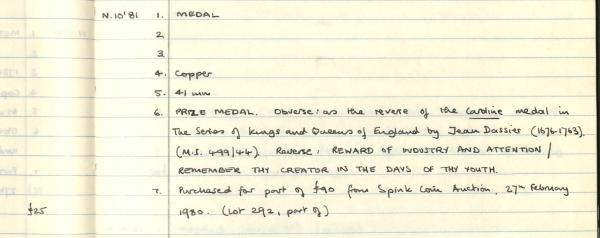 N.10'81 1. MEDAL
2.
3.
4. Copper
5. 41 mm
6. PRIZE MEDAL. Obverse: as the reverse of the Caroline medal in
The Series of Kings and Queens of England by Jean Dassier (1676-1763).
(M.I. 499/44). Reverse: REWARD OF INDUSTRY AND ATTENTION /
REMEMBER THY CREATOR IN THE DAYS OF THY YOUTH.
7. Purchased for part of £90 from Spink Coin Auction, 27th February
£25 1980. (Lot 292, part of)